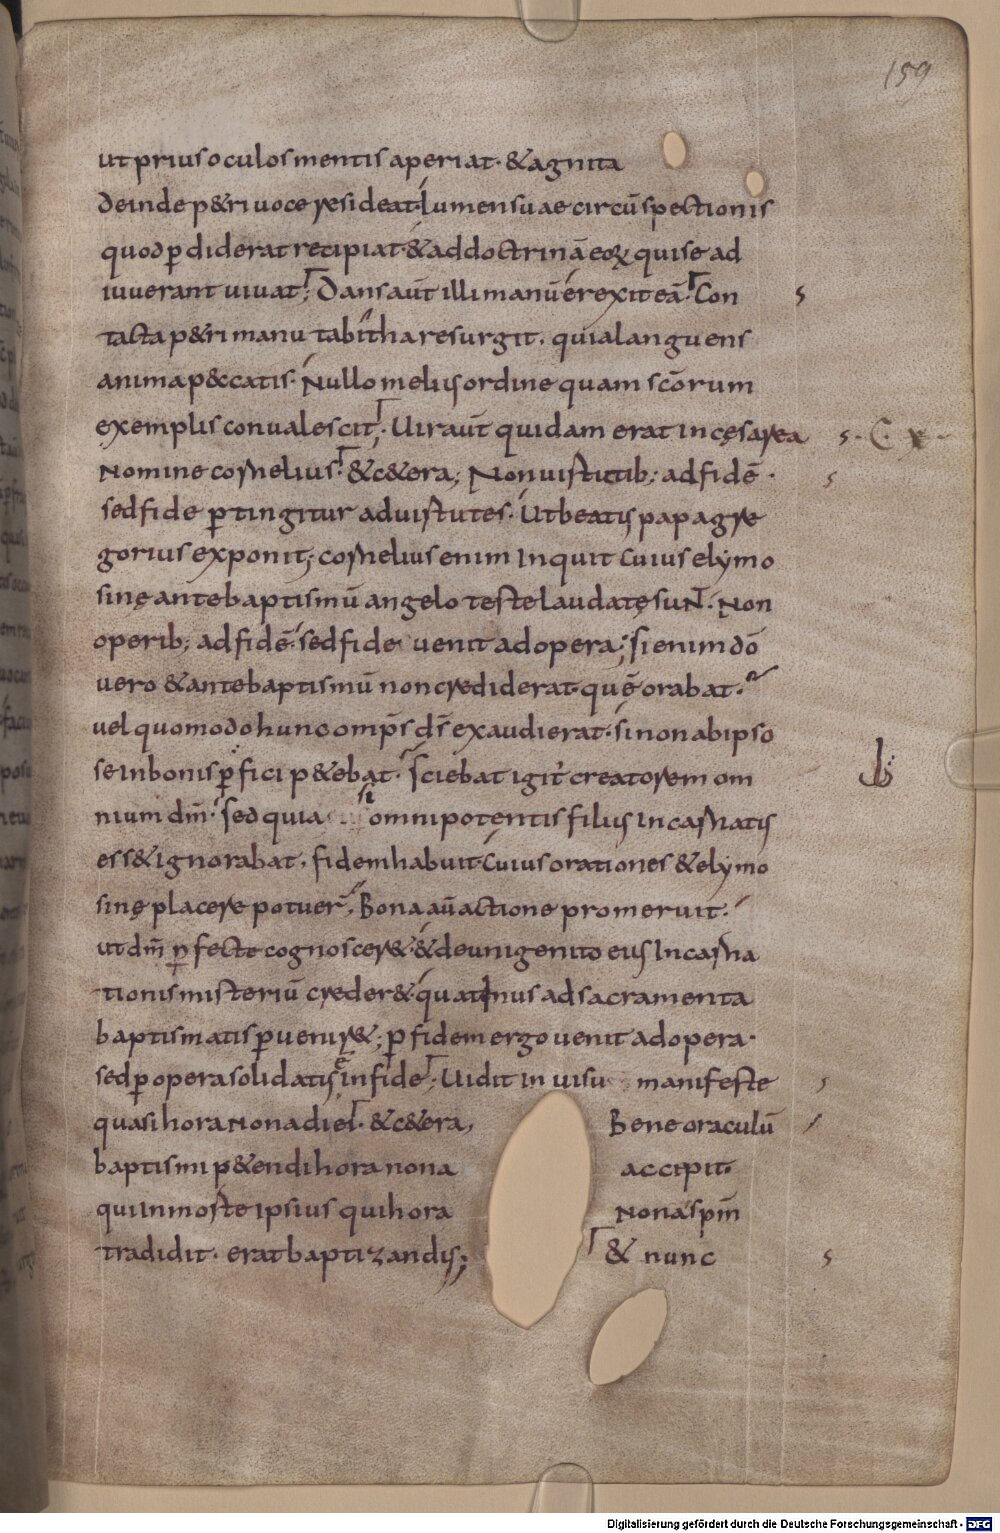 159
ut prius oculos mentis aperiat· & agnita
deinde p&ri uoce resideat· lumen suae circū spectionis
quod ꝑdiderat recipiat· & ad doctrinā eoꝝ qui se ad
iuuerant uiuat; Dans aūt illi manū erexit eā· Con
tacta p&ri manu tabitha resurgit· quia languens
anima p&ccatis· Nullo melius ordine quam scōrum
exemplis conualescit; Uir aūt quidam erat in cęsarea
Nomine cornelius· & c&era; Non uirtutib; ad fidē·
sed fide ꝑtingitur ad uirtutes· Ut beatus papa gre
gorius exponit; cornelius enim Inquit Cuius elymo
sinę ante baptismū angelo teste laudatę suN̄· Non
operib; ad fidē· sed fide uenit ad opera; Si enim dō
uero & ante baptismū non crediderat· quē orabat·
uel quomodo hunc omps̄ ds̄ exaudierat· si non ab ipso
se In bonis ꝑfici p&ebat· Sciebat igit creatorem om
nium dm̄· sed quia omnipotentis filius Incarnatus
ess& ignorabat· fidem habuit· Cuius orationes & elymo
sinę placere potuer̄· Bona aū actione promeruit·
ut dm̄ ꝑfecte cognoscer&· & de unigenito eius Incarna
tionis misteriū creder&· quatinus ad sacramenta
baptismatis ꝑuenir&; ꝑ fidem ergo uenit ad opera·
sed ꝑ opera solidatus ē in fide; Uidit in uisu manifeste
quasi hora Nona diei· & c&era, Bene oraculū
baptismi p&endi hora nona accipit·
qui In morte ipsius qui hora Nona spm̄
tradidit· erat baptizandus; & nunc
Digitalisierung gefördert durch die Deutsche Forschungsgemeinschaft - DFG